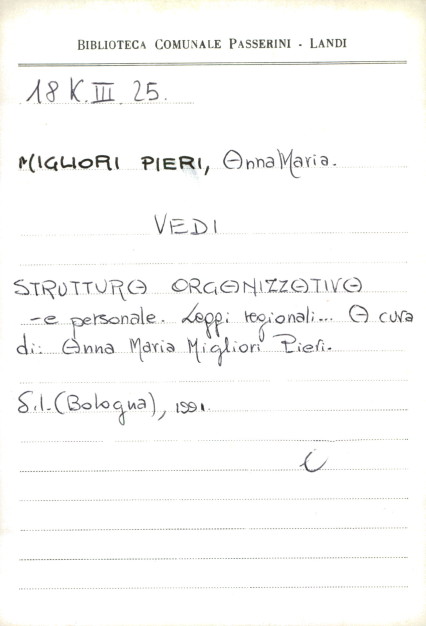 BIBLIOTECA COMUNALE PASSERINI - LANDI
18 K. III. 25.
MIGLIORI PIERI, Anna Maria.
VEDI
STRUTTURA ORGANIZZATIVA
- e personale. Leggi regionali... A cura
di: Anna Maria Migliori Pieri.
S.l. (Bologna), 1991.
C